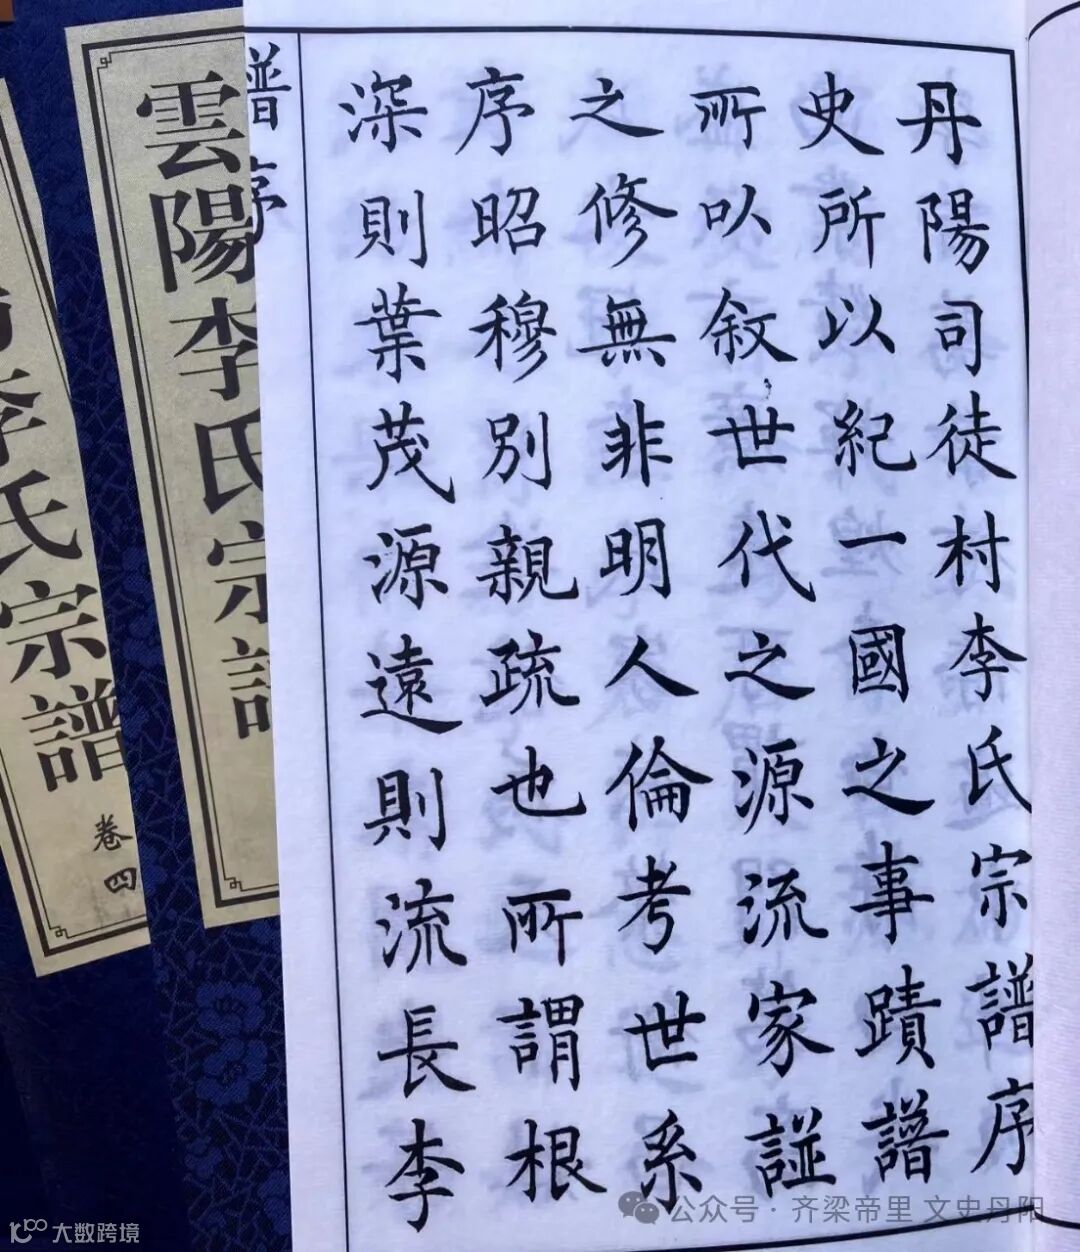 丹陽司徒村李氏宗譜序
史所以紀一國之事蹟譜
㪽㕥敘世代之源流家諩
之修無非明人倫考世系
序昭穆別親疏也㪽謂根
深則葉茂源遠則流長李
譜序
雲陽李氏宗譜
李氏宗譜
卷四
公众号·齐梁帝里 文史丹阳
大数跨境